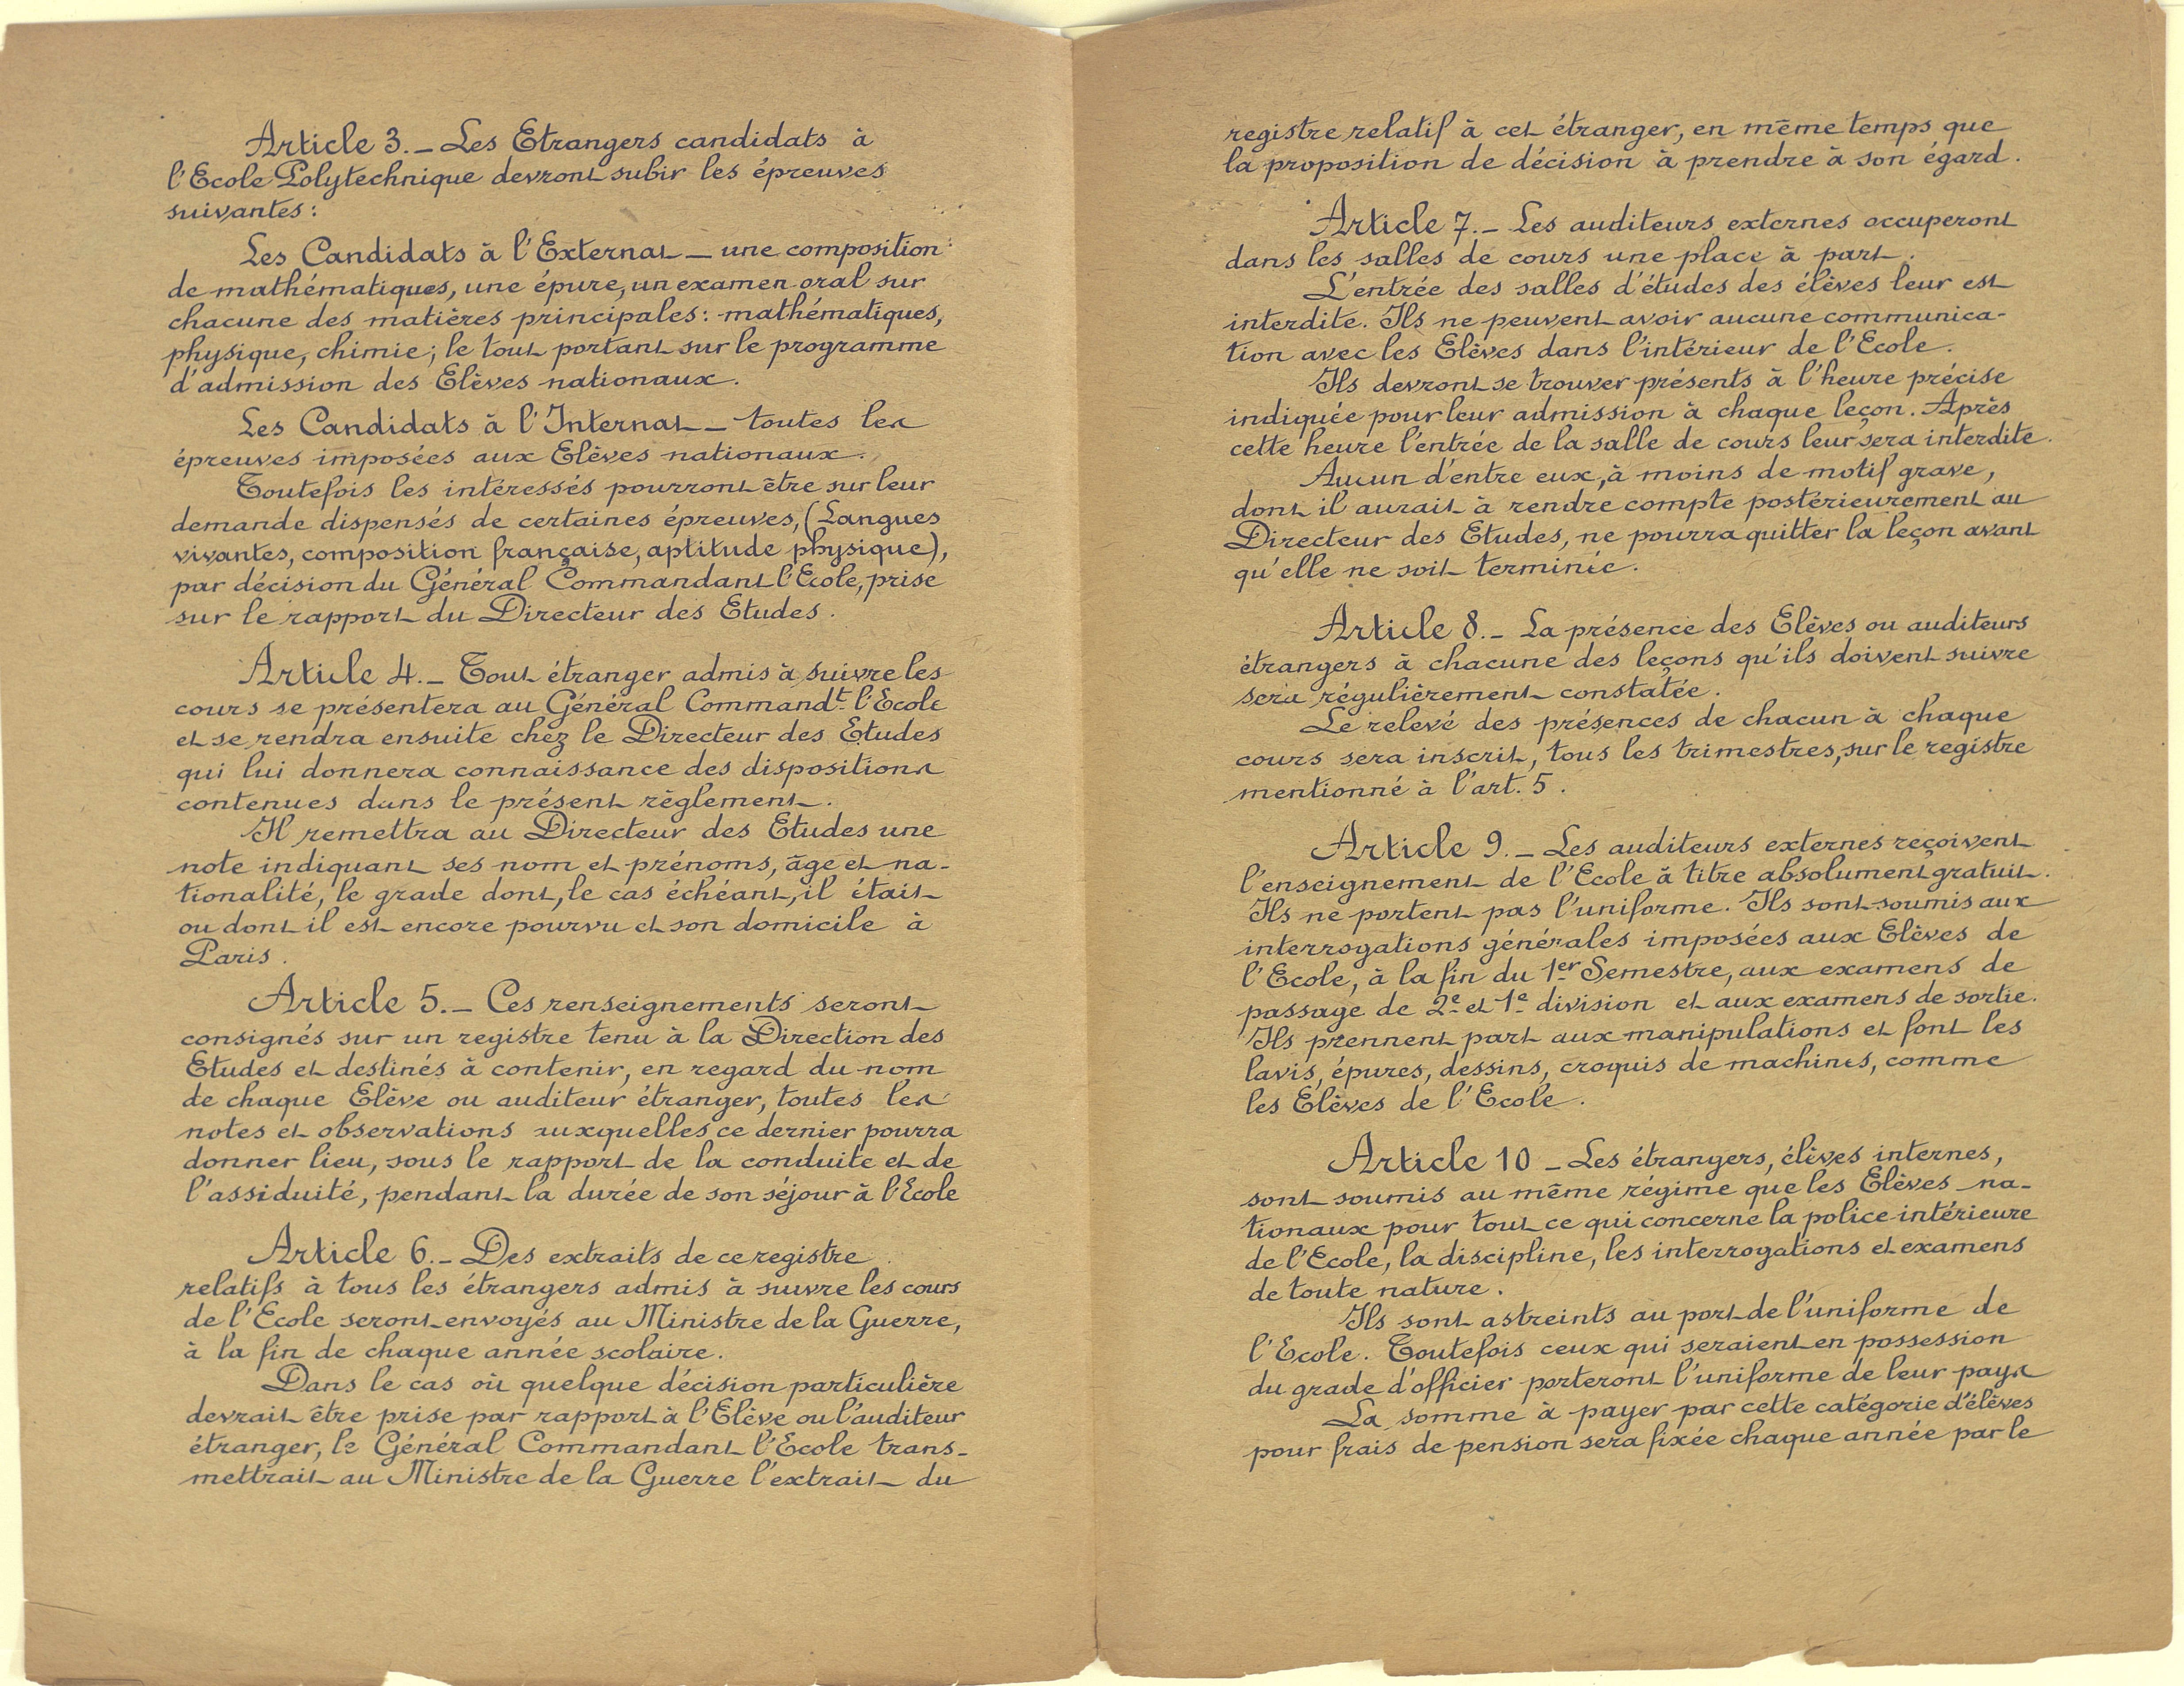 Article 3. _ Les Etrangers candidats à
l'Ecole Polytechnique devront subir les épreuves
suivantes :
Les Candidats à l'Externat _ une composition
de mathématiques, une épure, un examen oral sur
chacune des matières principales : mathématiques,
physique, chimie ; le tout portant sur le programme
d'admission des Elèves nationaux.
Les Candidats à l'Internat _ toutes les
épreuves imposées aux Elèves nationaux.
Toutefois les intéressés pourront être sur leur
demande dispensés de certaines épreuves, (Langues
vivantes, composition française, aptitude physique),
par décision du Général Commandant l'Ecole, prise
sur le rapport du Directeur des Etudes.
Article 4. _ Tout étranger admis à suivre les
cours se présentera au Général Commandt l'Ecole
et se rendra ensuite chez le Directeur des Etudes
qui lui donnera connaissance des dispositions
contenues dans le présent règlement.
Il remettra au Directeur des Etudes une
note indiquant ses nom et prénoms, âge et na-
tionalité, le grade dont, le cas échéant, il était
ou dont il est encore pourvu et son domicile à
Paris.
Article 5. _ Ces renseignements seront
consignés sur un registre tenu à la Direction des
Etudes et destinés à contenir, en regard du nom
de chaque Elève ou auditeur étranger, toutes les
notes et observations auxquelles ce dernier pourra
donner lieu, sous le rapport de la conduite et de
l'assiduité, pendant la durée de son séjour à l'Ecole
Article 6. _ Des extraits de ce registre
relatifs à tous les étrangers admis à suivre les cours
de l'Ecole seront envoyés au Ministre de la Guerre,
à la fin de chaque année scolaire.
Dans le cas où quelque décision particulière
devrait être prise par rapport à l'Elève ou l'auditeur
étranger, le Général Commandant l'Ecole trans-
mettrait au Ministre de la Guerre l'extrait du
registre relatif à cet étranger, en même temps que
la proposition de décision à prendre à son égard.
Article 7. _ Les auditeurs externes occuperont
dans les salles de cours une place à part.
L'entrée des salles d'études des élèves leur est
interdite. Ils ne peuvent avoir aucune communica-
tion avec les Elèves dans l'intérieur de l'Ecole.
Ils devront se trouver présents à l'heure précise
indiquée pour leur admission à chaque leçon. Après
cette heure l'entrée de la salle de cours leur sera interdite.
Aucun d'entre eux, à moins de motif grave,
dont il aurait à rendre compte postérieurement au
Directeur des Etudes, ne pourra quitter la leçon avant
qu'elle ne soit terminée.
Article 8. _ La présence des Elèves ou auditeurs
étrangers à chacune des leçons qu'ils doivent suivre
sera régulièrement constatée.
Le relevé des présences de chacun à chaque
cours sera inscrit, tous les trimestres, sur le registre
mentionné à l'art. 5.
Article 9. _ Les auditeurs externes reçoivent
l'enseignement de l'Ecole à titre absolument gratuit.
Ils ne portent pas l'uniforme. Ils sont soumis aux
interrogations générales imposées aux Elèves de
l'Ecole, à la fin du 1er Semestre, aux examens de
passage de 2e et 1e division et aux examens de sortie.
Ils prennent part aux manipulations et font les
lavis, épures, dessins, croquis de machines, comme
les Elèves de l'Ecole.
Article 10 _ Les étrangers, élèves internes,
sont soumis au même régime que les Elèves na-
tionaux pour tout ce qui concerne la police intérieure
de l'Ecole, la discipline, les interrogations et examens
de toute nature.
Ils sont astreints au port de l'uniforme de
l'Ecole. Toutefois ceux qui seraient en possession
du grade d'officier porteront l'uniforme de leur pays
La somme à payer par cette catégorie d'élèves
pour frais de pension sera fixée chaque année par le